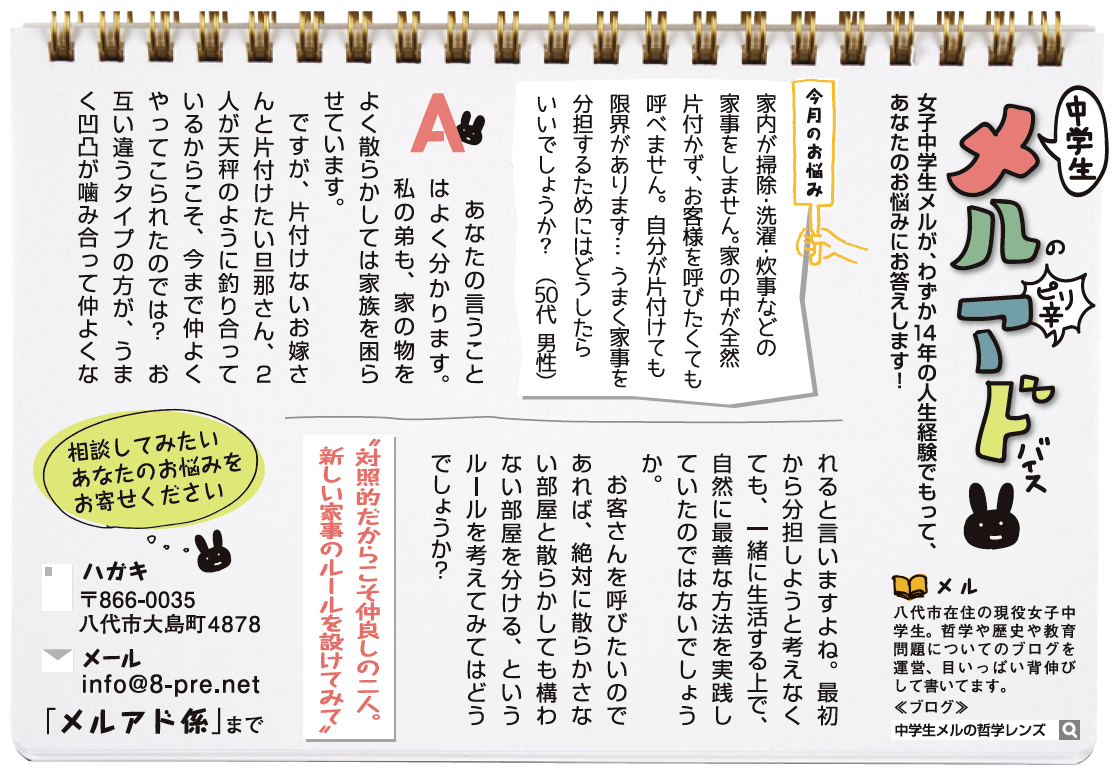 中学生
メルの
ピリ辛
アドバイス
女子中学生メルが、わずか14年の人生経験でもって、
あなたのお悩みにお答えします！
メル
八代市在住の現役女子中
学生。哲学や歴史や教育
問題についてのブログを
運営、目いっぱい背伸び
して書いてます。
≪ブログ≫
中学生メルの哲学レンズ
今月のお悩み
家内が掃除・洗濯・炊事などの
家事をしません。家の中が全然
片付かず、お客様を呼びたくても
呼べません。自分が片付けても
限界があります… うまく家事を
分担するためにはどうしたら
いいでしょうか？ （50代 男性）
A
あなたの言うこと
はよく分かります。
私の弟も、家の物を
よく散らかしては家族を困ら
せています。
ですが、片付けないお嫁さ
んと片付けたい旦那さん、2
人が天秤のように釣り合って
いるからこそ、今まで仲よく
やってこられたのでは？ お
互い違うタイプの方が、うま
く凹凸が噛み合って仲よくな
れると言いますよね。最初
から分担しようと考えなく
ても、一緒に生活する上で、
自然に最善な方法を実践し
ていたのではないでしょう
か。
お客さんを呼びたいので
あれば、絶対に散らかさな
い部屋と散らかしても構わ
ない部屋を分ける、という
ルールを考えてみてはどう
でしょうか？
〝対照的だからこそ仲良しの二人。
新しい家事のルールを設けてみて〟
相談してみたい
あなたのお悩みを
お寄せください
ハガキ
〒866-0035
八代市大島町4878
メール
info@8-pre.net
「メルアド係」まで